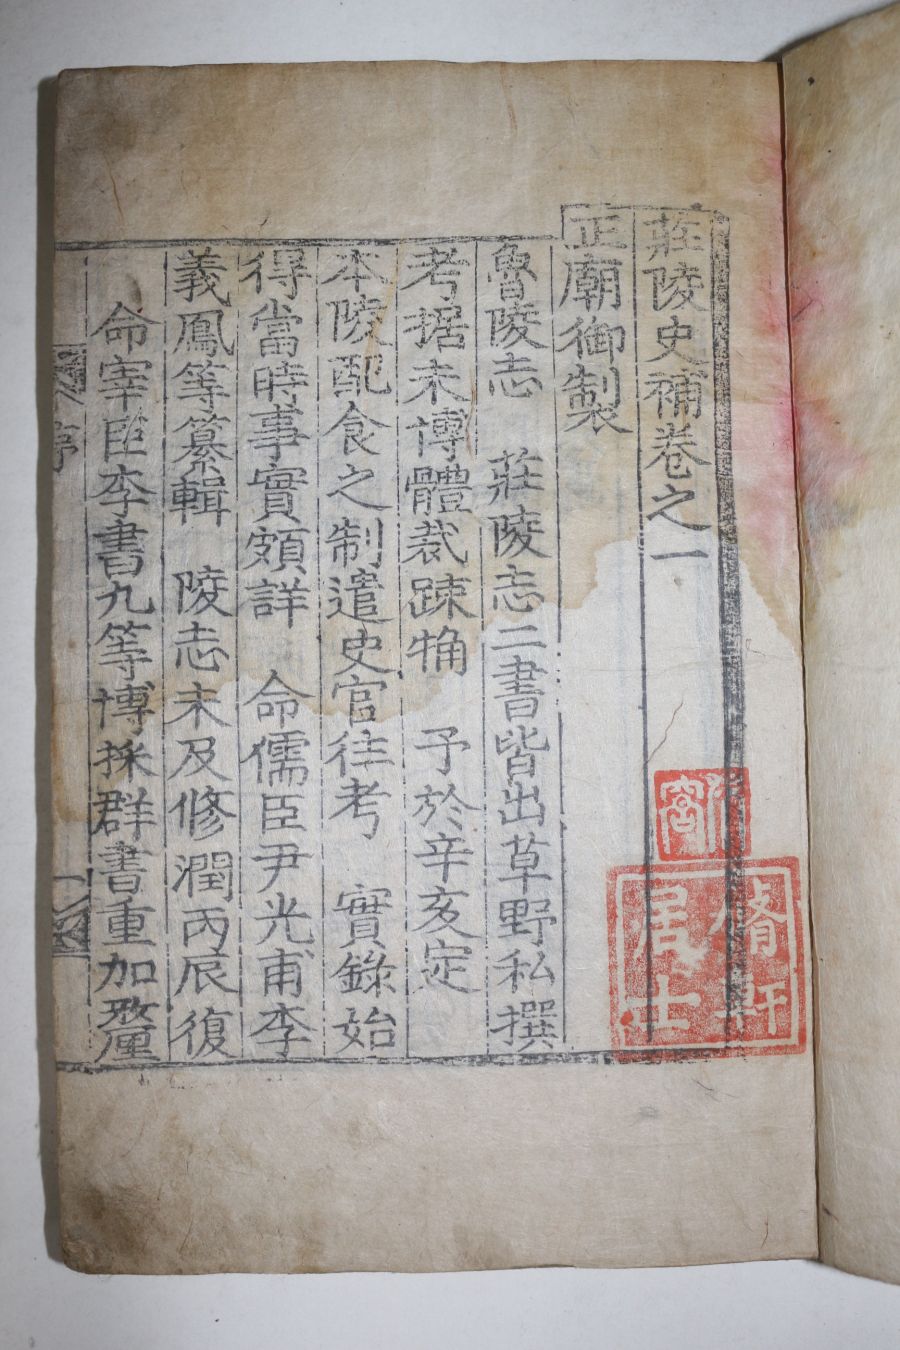 莊陵史補卷之一
正廟御製
魯陵志 莊陵志二書皆出草野私撰
考据未博體裁踈觕 予於辛亥定
本陵配食之制遣史官往考 實錄始
得當時事實頗詳 命儒臣尹光甫李
義鳳等纂輯 陵志未及修潤丙辰復
命宰臣李書九等博採群書重加釐
序
一
脩軒居士